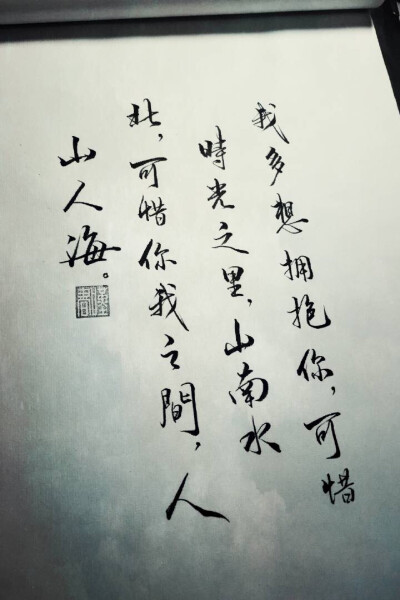 我多想拥抱你，可惜
時光之里，山南水
北，可惜你我之間，人
山人海。